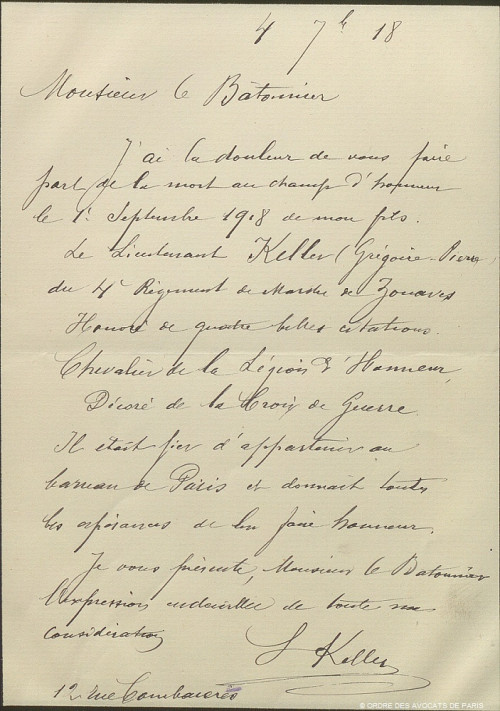 4 7b 18
Monsieur le Bâtonnier
J'ai la douleur de vous faire
part de la mort au champ d'honneur
le 1r Septembre 1918 de mon fils.
Le Lieutenant Keller (Grégoire-Pierre)
du 4e Régiment de Marche de Zouaves
Honoré de quatre belles citations.
Chevalier de la Légion d'Honneur,
Décoré de la Croix de Guerre.
Il était fier d'appartenir au
barreau de Paris et donnait toutes
les espérances de lui faire honneur.
Je vous présente, Monsieur le Batonnier
l'expression endeuillée de toute ma
considération
Keller
12 rue Combacérès
© ORDRE DES AVOCATS DE PARIS